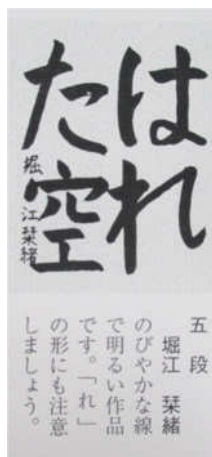 はれ
た空
堀江栞緒
五段
堀江 栞緒
のびやかな線
で明るい作品
です。「れ」
の形にも注意
しましょう。